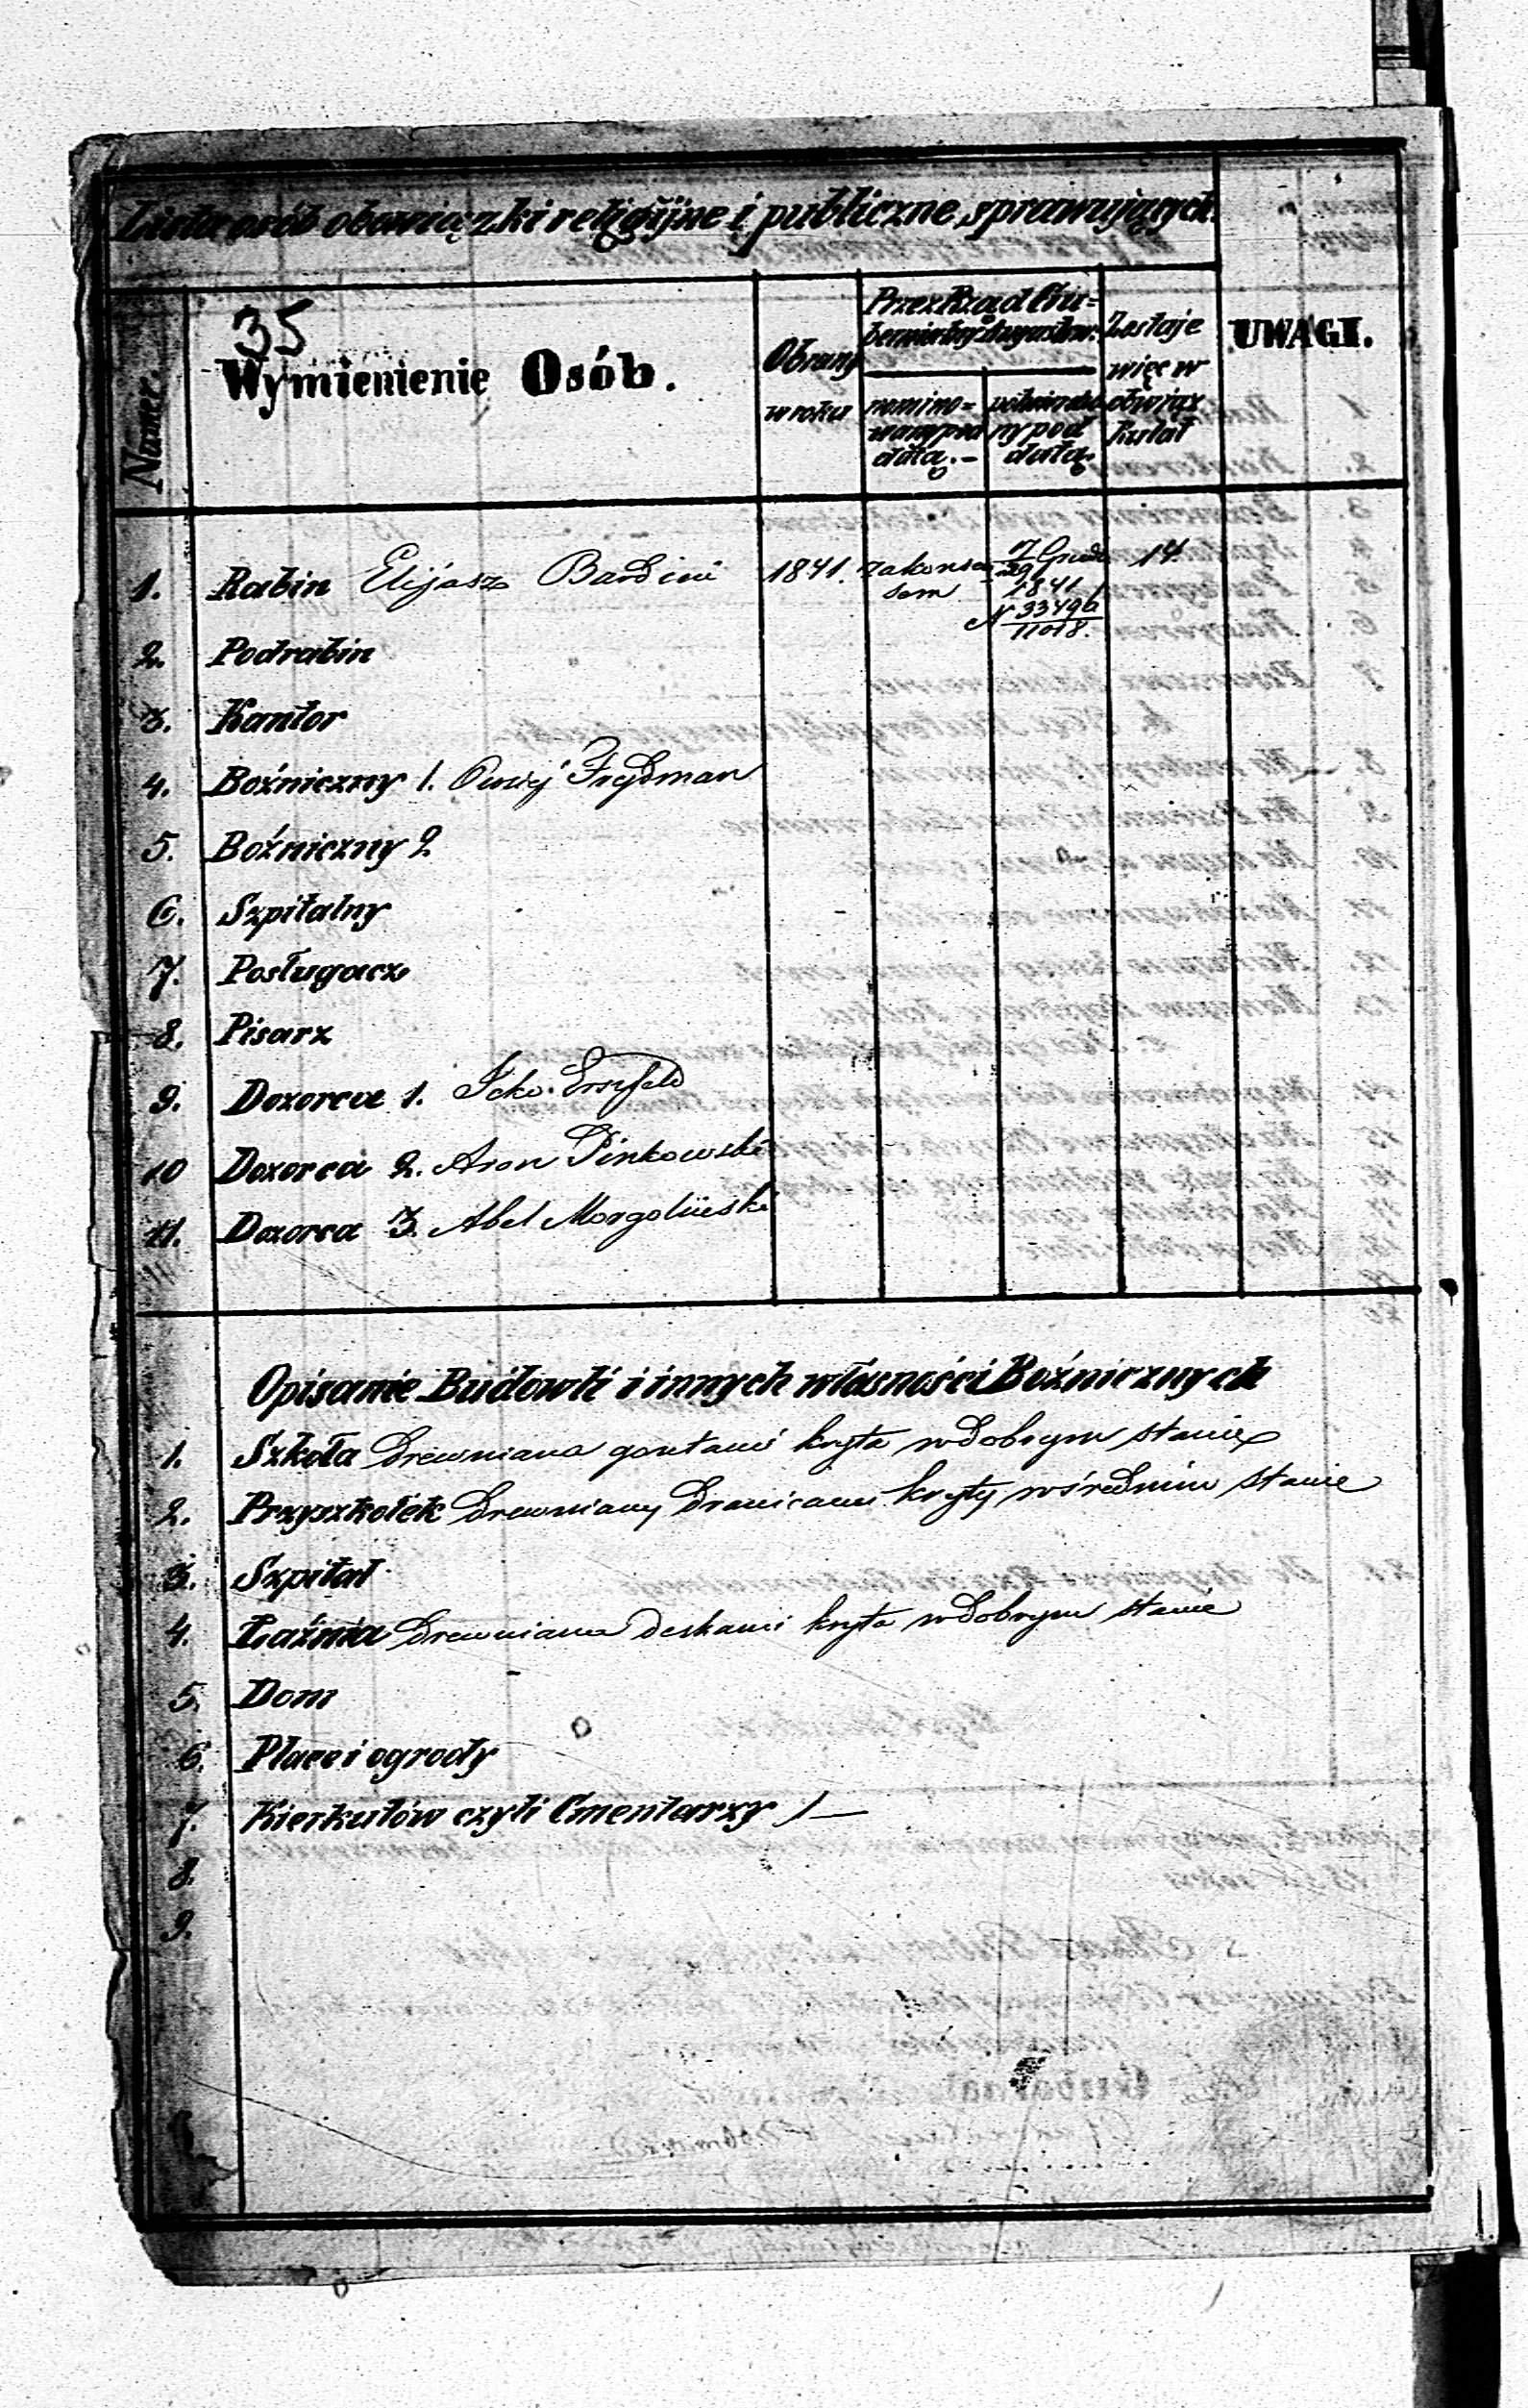 Lista osób obowiązki religijne i publiczne sprawujących.
Numer.
35
Wymienienie Osób.
Obrany w roku
Przez Rząd Gu=
bernialny Augustow:
nomino=
wany pod
datą.-
potwierdzo
ny pod
datą.
Zostaje
więc w
obowiąz
ku lat
UWAGI.
1. Rabin Elijasz 1841. 17/29 Grud 1841 N 33496/11018. 14.
2. Podrabin
3. Kantor
4. Boźniczny 1. Frydman
5. Boźniczny 2
6. Szpitalny
7. Posługacz
8. Pisarz
9. Dozorca 1. Icko
10 Dozorca 2. Aron Pinkowski
11. Dozorca 3. Abel Morgoliński
Opisanie Budowli i innych własności Boźnicznych
1. Szkoła drewniana gontami kryta w dobrym stanie
2. Przyszkołek drewniany dranicami kryty w średnim stanie
3. Szpital
4. Łaźnia drewniana deskami kryta w dobrym stanie
5. Dom
6. Place i ogrody
7. Kierkutów czyli Cmentarzy 1—
8.
9.